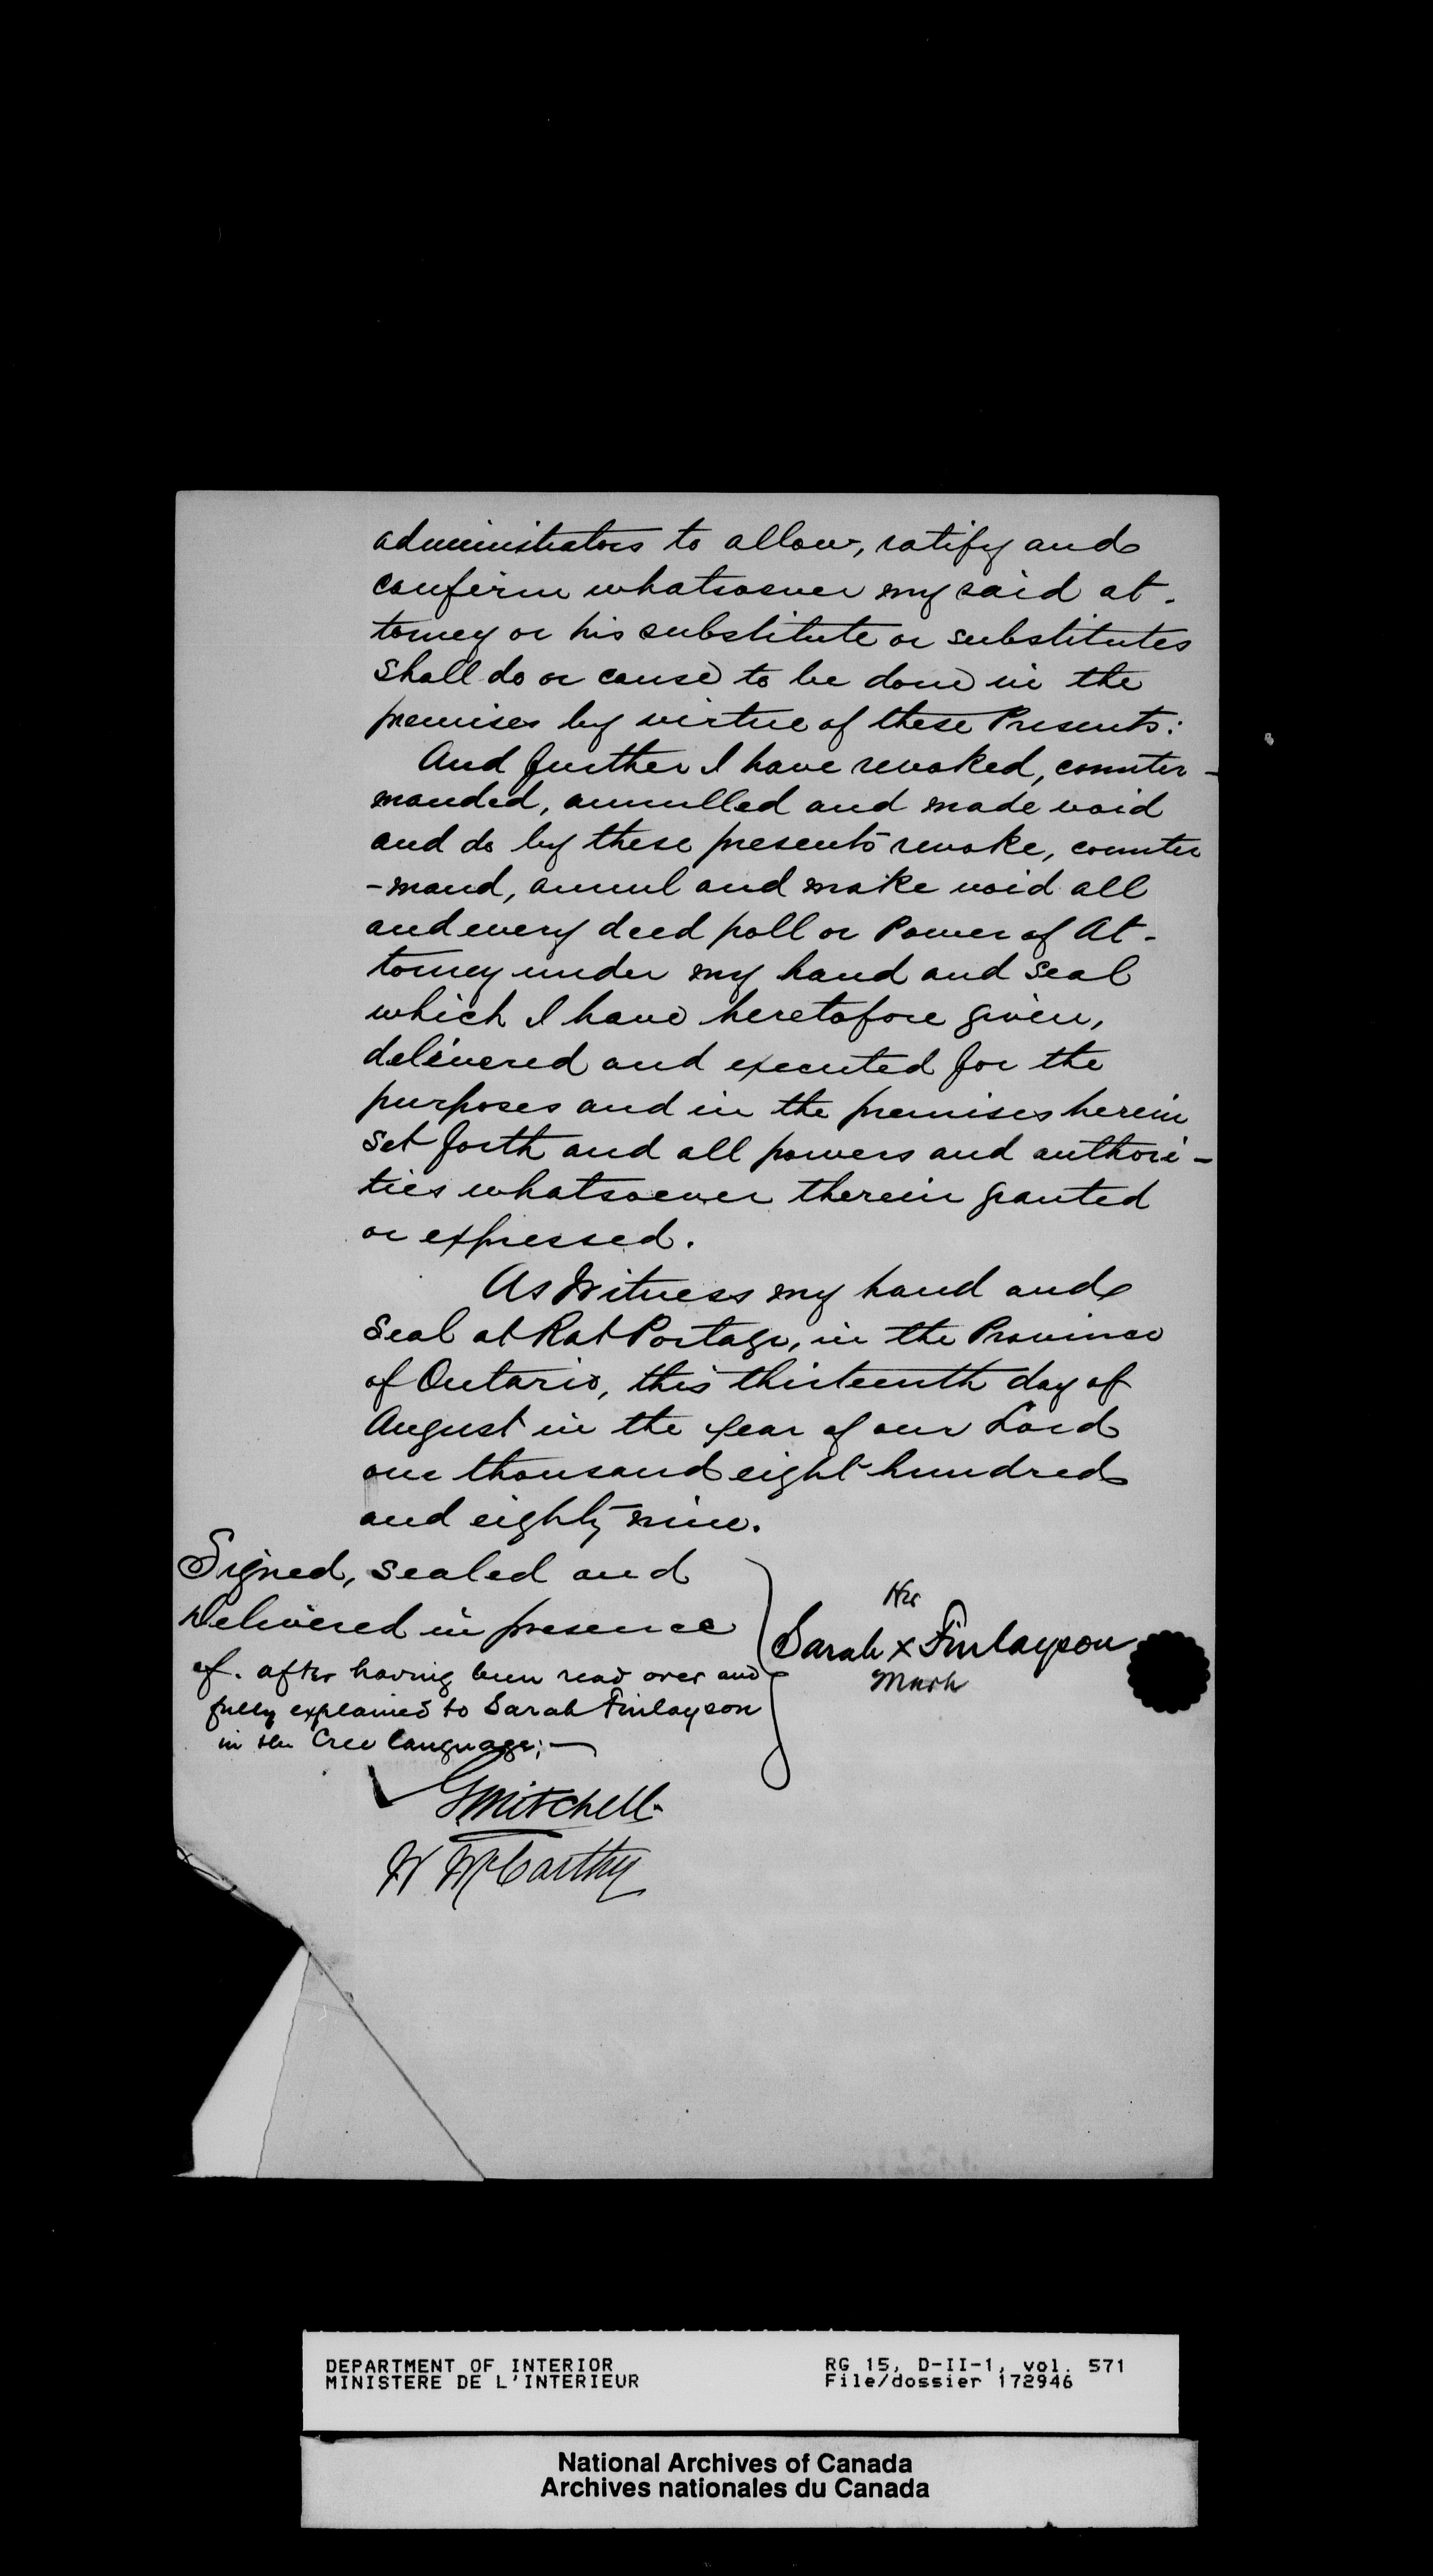 administrators to allow, ratify and
confirm whatsoever my said at-
torney or his substitute or substitutes
shall do or cause to be done in the
premises by virtue of these Presents:
And further I have revoked, counter-
manded, annulled and made void
and do by these presents revoke, counter
-mand, annul and make void all
and every deed poll or Power of At-
torney under my hand and seal
which I have heretofore given,
delivered and executed for the
purposes and in the premises herein
set forth and all powers and authori-
ties whatsoever therein granted
or expressed.
As Witness my hand and
Seal at Rat Portage, in the Province
of Ontario, this thirteenth day of
August in the year of our Lord
one thousand eight hundred
and eighty nine.
Signed, sealed and
Delivered in presence
of. after having been read over and
fully explained to Sarah Finlayson
in the Cree language;—
Her
Sarah x Finlayson
Mark
G Mitchell
W McCarthy
DEPARTMENT OF INTERIOR
MINISTERE DE L'INTERIEUR
RG 15, D-II-1, vol. 571
File/dossier 172946
National Archives of Canada
Archives nationales du Canada